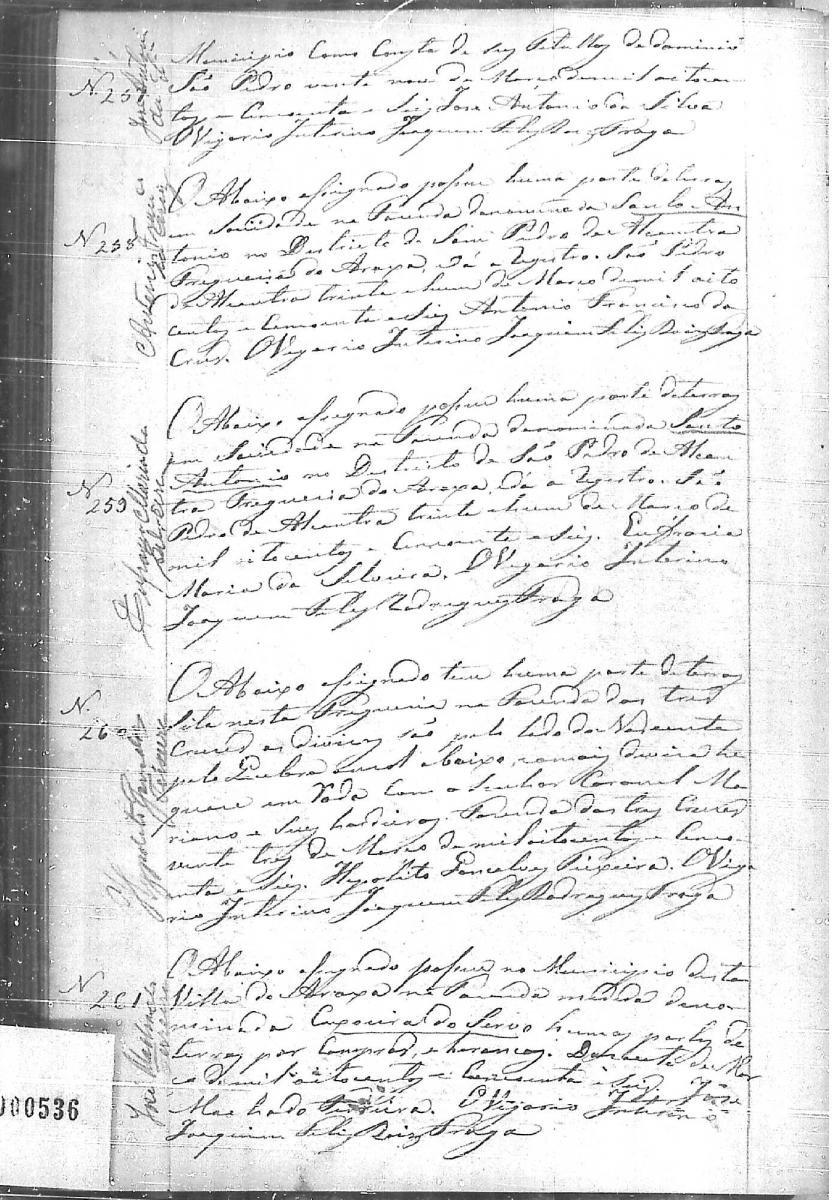 Municipio Como Consta de seus Titullos de dominio
São Pedro vente nove de Março de mil oitocen
N. 257
tos e Concoenta e Seis José Antonio da Silva
O Vigario Interino Joaquim Felis Roiz Fraga
O Abaixo assignado possue huma parte de terras
em Sociedade na Fazenda denominada Santo An
N. 258
tonio no Destricto de São Pedro de Alcantra
Freguesia do Araxa, dá a registro. São Pedro
de Alcantra trinta e hum de Março de mil oito
centos e Concoenta e Seis Antonio Francisco da
Cruz. O Vigario Interino Joaquim Felis Roiz Fraga
O Abaixo assignado possue huma parte de terras
em Sociedade na Fazenda denominada Santo
Antonio no Destricto de São Pedro de Alcan
N. 259
tra Freguesia do Araxa, dá a registro. São
Pedro de Alcantra trinta e hum de Março de
mil oitocentos e Concoenta e seis. Eufrasia
Maria da Silveira. O Vigario Interino
Joaquim Felis Rodrigues Fraga
O Abaixo assignado tem huma parte de terras
N. 260
sita nesta Freguesia na Fazenda das tres
Cruzes as divizas são pelo lado do Nascente
pelo Quebra anzol abaixo, e o mais divisa he
quase em roda Com o Senhor Coronel Ma
riano e seus hardeiros. Fazenda das tres Cruzes
vente tres de Março de mil oitocentos e Conco
enta e Seis. Hypolito Goncalves Teixeira. O Viga
rio Interino Joaquim Felis Rodrigues Fraga
O Abaixo assignado possue no Municipio desta
N. 261
Villa do Araxa na Fazenda medida deno
minada Capoeira do Servo humas partes de
terras por Compras, e haransas. de Mar
ço de mil oitocentos e Concoenta e Seis José
Machado Ferreira. O Vigario Interino
Joaquim Felis Roiz Fraga
000536